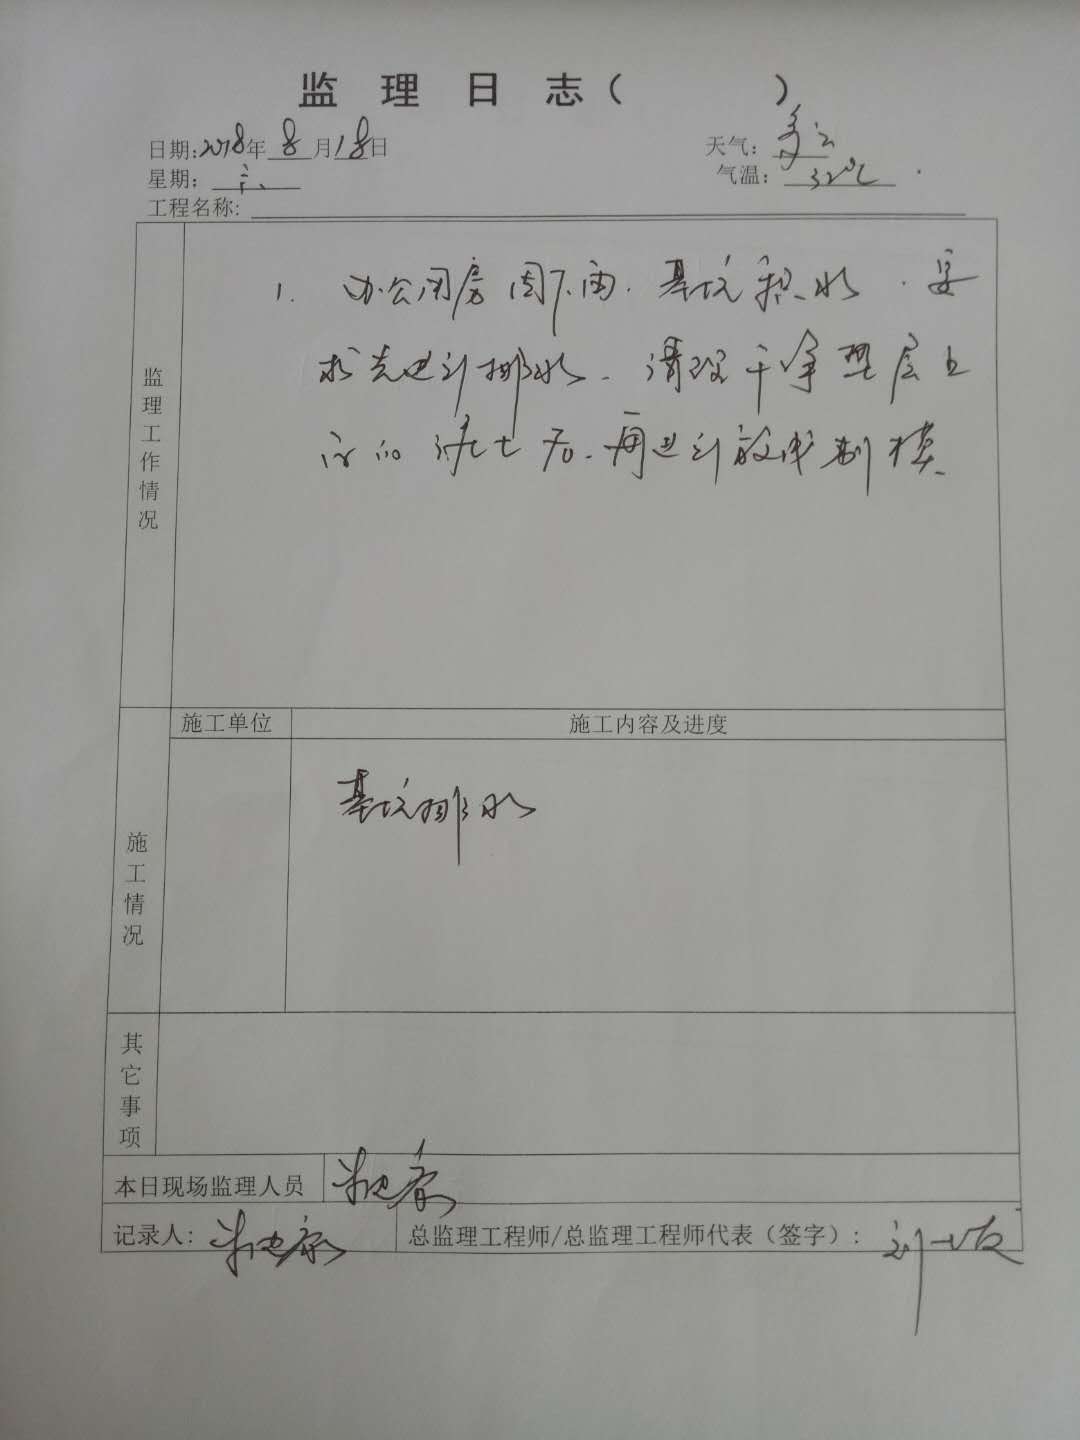 监 理 日 志 ( )
日期:2018年 8 月18日
天气: 多云
星期: 六
气温: 32℃
工程名称:
监理工作情况
1. 办公用房因下雨.基坑积水.要
求先进行排水.清理干净垫层上
部的淤土后.再进行放线制模
施工单位
施工内容及进度
施工情况
基坑排水
其它事项
本日现场监理人员
记录人:
总监理工程师/总监理工程师代表（签字）: 刘